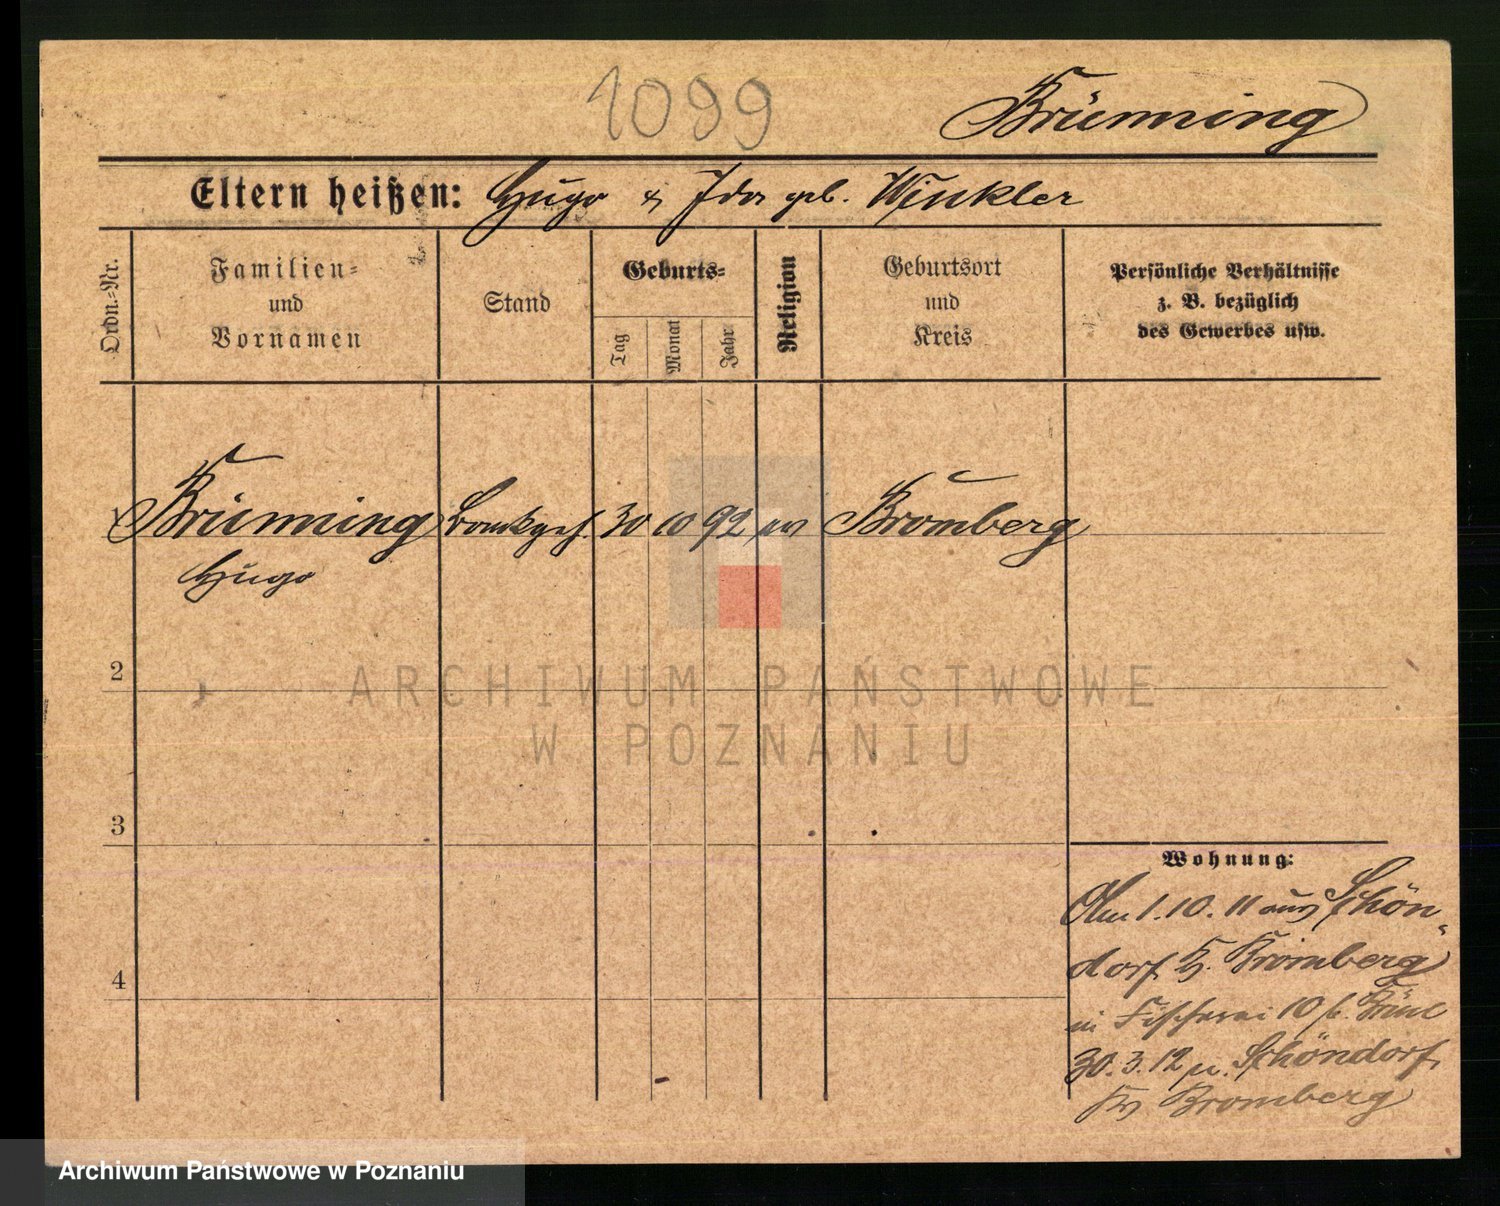 1099
Brünning
Eltern heißen: Hugo & Ida geb. Winkler
Ordn.-Nr.
Familien-
und
Vornamen
Stand
Geburts-
Tag
Monat
Jahr
Religion
Geburtsort
und
Kreis
Persönliche Verhältnisse
z. B. bezüglich
des Gewerbes usw.
1 Brünning Bankgeh. 30 10 92 ev Bromberg
Hugo
2
3
4
Wohnung:
Am 1.10.11 aus Schön-
dorf Kr. Bromberg
in Fischerei 10 b.
30.3.12 n. Schöndorf
Kr Bromberg
ARCHIWUM PAŃSTWOWE
W POZNANIU
Archiwum Państwowe w Poznaniu